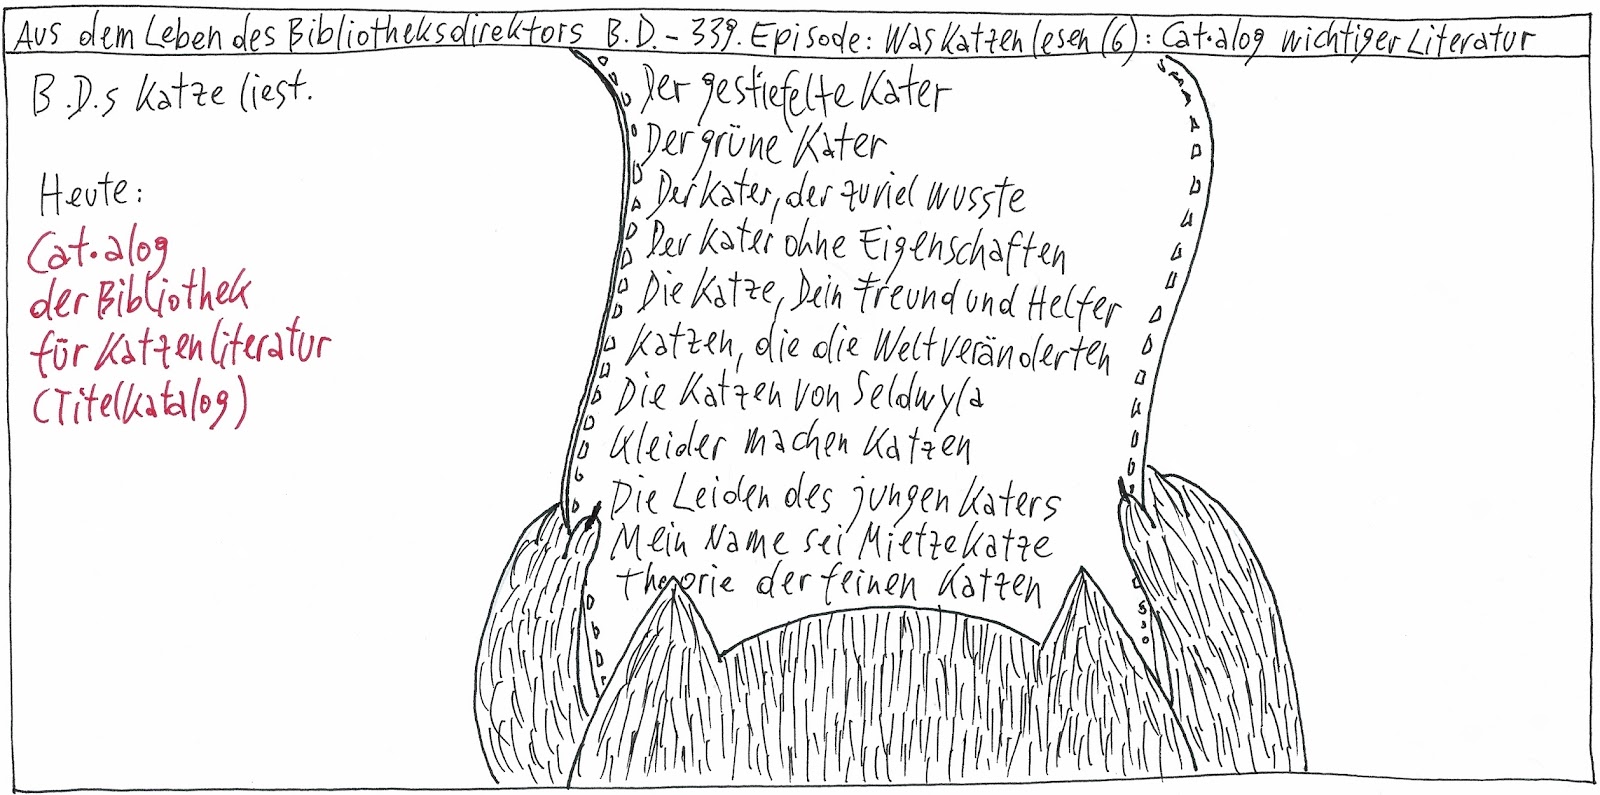 Aus dem Leben des Bibliotheksdirektors B.D. - 339. Episode: Was Katzen lesen (6): Cat.alog wichtiger Literatur
B.D.s Katze liest.
Heute:
Cat.alog
der Bibliothek
für Katzenliteratur
(Titelkatalog)
Der gestiefelte Kater
Der grüne Kater
Der Kater, der zuviel wusste
Der Kater ohne Eigenschaften
Die Katze, Dein Freund und Helfer
Katzen, die die Welt veränderten
Die Katzen von Seldwyla
Kleider machen Katzen
Die Leiden des jungen Katers
Mein Name sei Mietzekatze
Theorie der feinen Katzen